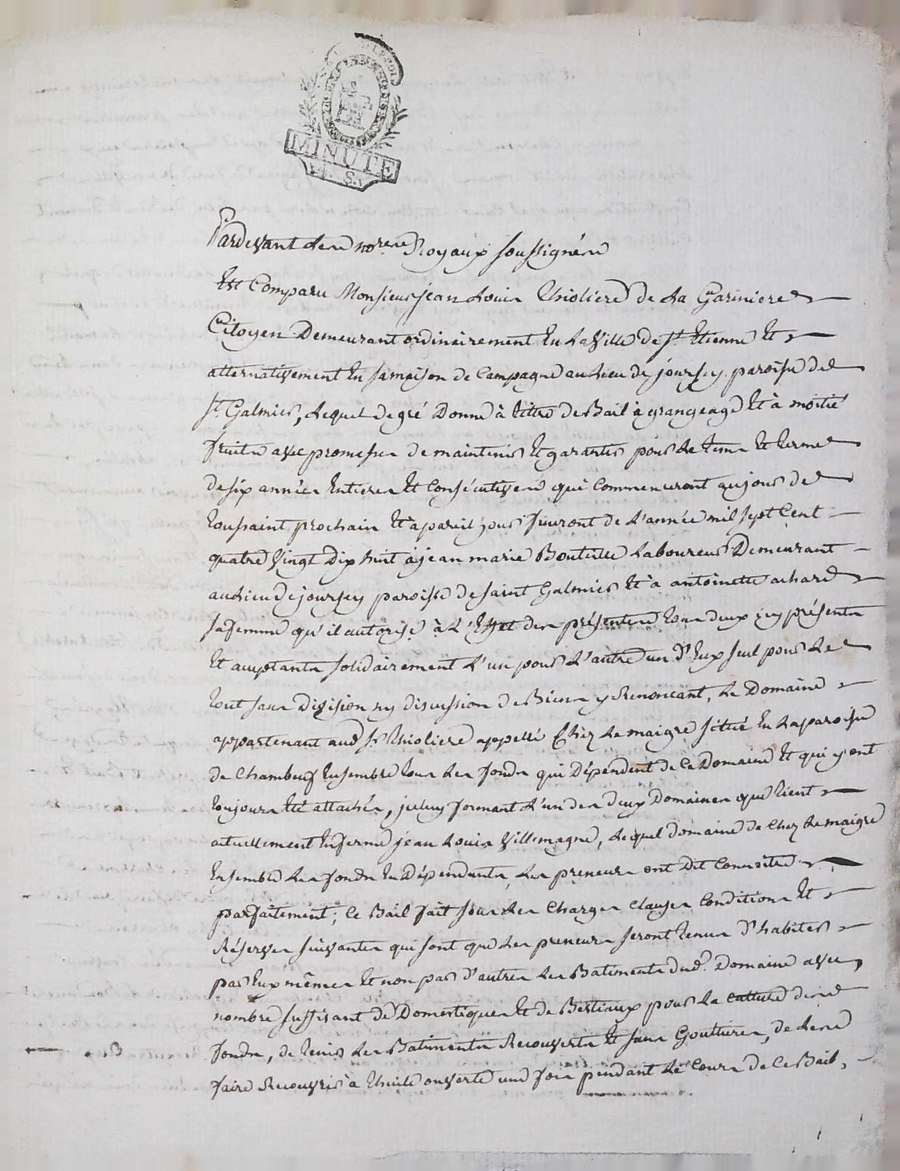 MINUTE
Pardevant les no.res Royaux soussignés
Est Comparu Monsieur jean Louis Thioliere de La Gariniere
Citoyen Demeurant ordinairement En La Ville de St Etienne Et
alternativement En sa maison de Campagne au Lieu de joursey paroisse de
St Galmier, Lequel de gré Donne à titre de Bail à grangeage Et à moitié
fruits avec promesses de maintenir Et garantir pour Le tems Et terme
de six années Entieres Et Consécutives qui Commenceront au jour de
toussaint prochain Et à pareil jour finiront de L'année mil sept Cent
quatre Vingt Dix huit à jean marie Bouteille Laboureur Demeurant
au Lieu de joursey paroisse de saint Galmier Et à antoinette achard
sa femme qu'il autorise à L'Effet des présentes tous deux icy présents
Et acceptants solidairement L'un pour L'autre un d'Eux seul pour Le
tout sans division ny discussion de Biens y Renoncant, Le Domaine
appartenant aud. Sr Thioliere appellé Chez Le maigre situé En La paroisse
de Chambeuf Ensemble tous Les fonds qui Dépendent de Ce Domaine Et qui y ont
toujours Eté attachés, iceluy formant L'un des deux Domaines que tient
actuellement En ferme jean Louis Villemagne, Lequel domaine de Chez Le maigre
Ensemble Les fonds En Dépendants, Les preneurs ont Dit Connoitre
parfaitement; Ce Bail fait sous Les Charges Clauses Conditions Et
Réserves suivantes qui sont que Les preneurs seront tenus D'habiter
par Eux mêmes Et non par d'autres Les Batiments dud. Domaine avec
nombre suffisant de Domestiques Et de Bestiaux pour La Culture des
fonds, de tenir Les Batiments Recouverts Et sans Gouttieres, de Les
faire Recouvrir à tuile ouverte une fois pendant Le Cours de Ce Bail,